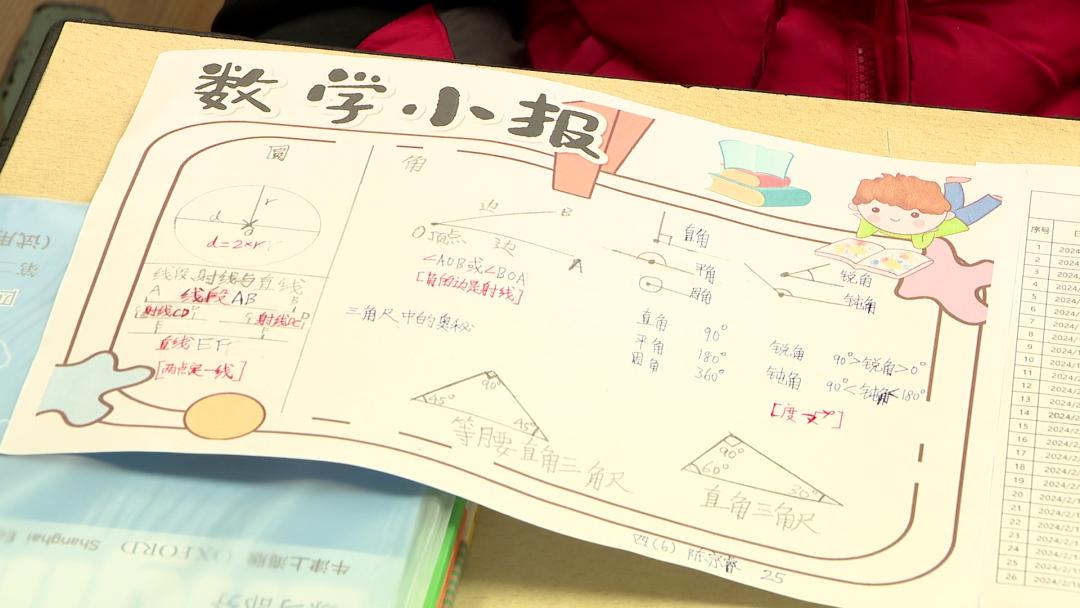 数学小报
圆
r
d
O
d=2×r
线段、射线与直线
A
B
线段AB
射线CD
射线DC
E
F
直线EF
[两点是一线]
角
边
B
O顶点
边
A
∠AOB或∠BOA
[角的边是射线]
直角
平角
周角
锐角
钝角
直角 90°
平角 180°
周角 360°
锐角 90°>锐角>0°
钝角 90°<钝角<180°
三角尺中的奥秘
90°
45°
45°
等腰直角三角尺
90°
60°
30°
直角三角尺
四(6)
25
序号
1 2024
2 2024
3 2024
4 2024
5 2024
6 2024
7 2024
8 2024
9 2024
10 2024
11 2024
12 2024
13 2024
14 2024/2
15 2024/2
16 2024/2
17 2024/2
18 2024/2
19 2024/2
20 2024/2
21 2024/2
22 2024/2
23 2024/2
24 2024/2
25 2024/2
26 2024/2
牛津上海版
OXFORD
Shanghai Ed